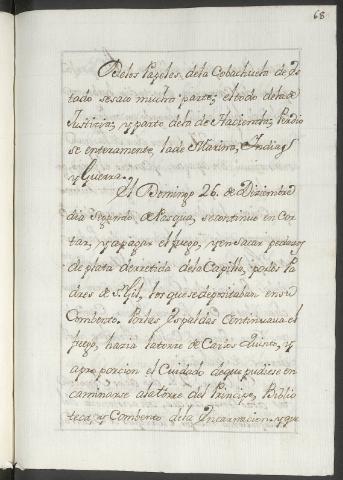 68
De los Papeles, dela Cobachuela de Es
tado sesacò mucha parte; el todo dela de
Justicia; y parte dela de Hacienda; Perdio
se enteramente, la de Marina, Indias,
y Guerra.
El Domingo 26. de Diziembre
dia Segundo de Pasqua, secontinuò en Cor
tar, y apagar el fuego, y en sacar pedazos
de plata derretida dela Capilla, por los Pa
dres de Sn Gil, los que se depositaban en su
Combento. Por las Espaldas Continuava el
fuego, hazia la torre de Carlos Quinto, y
apro porcion el Cuidado de que pudiese en
caminarse ala torre del Principe, Biblio
teca, y Combento dela Encarnacion. y que